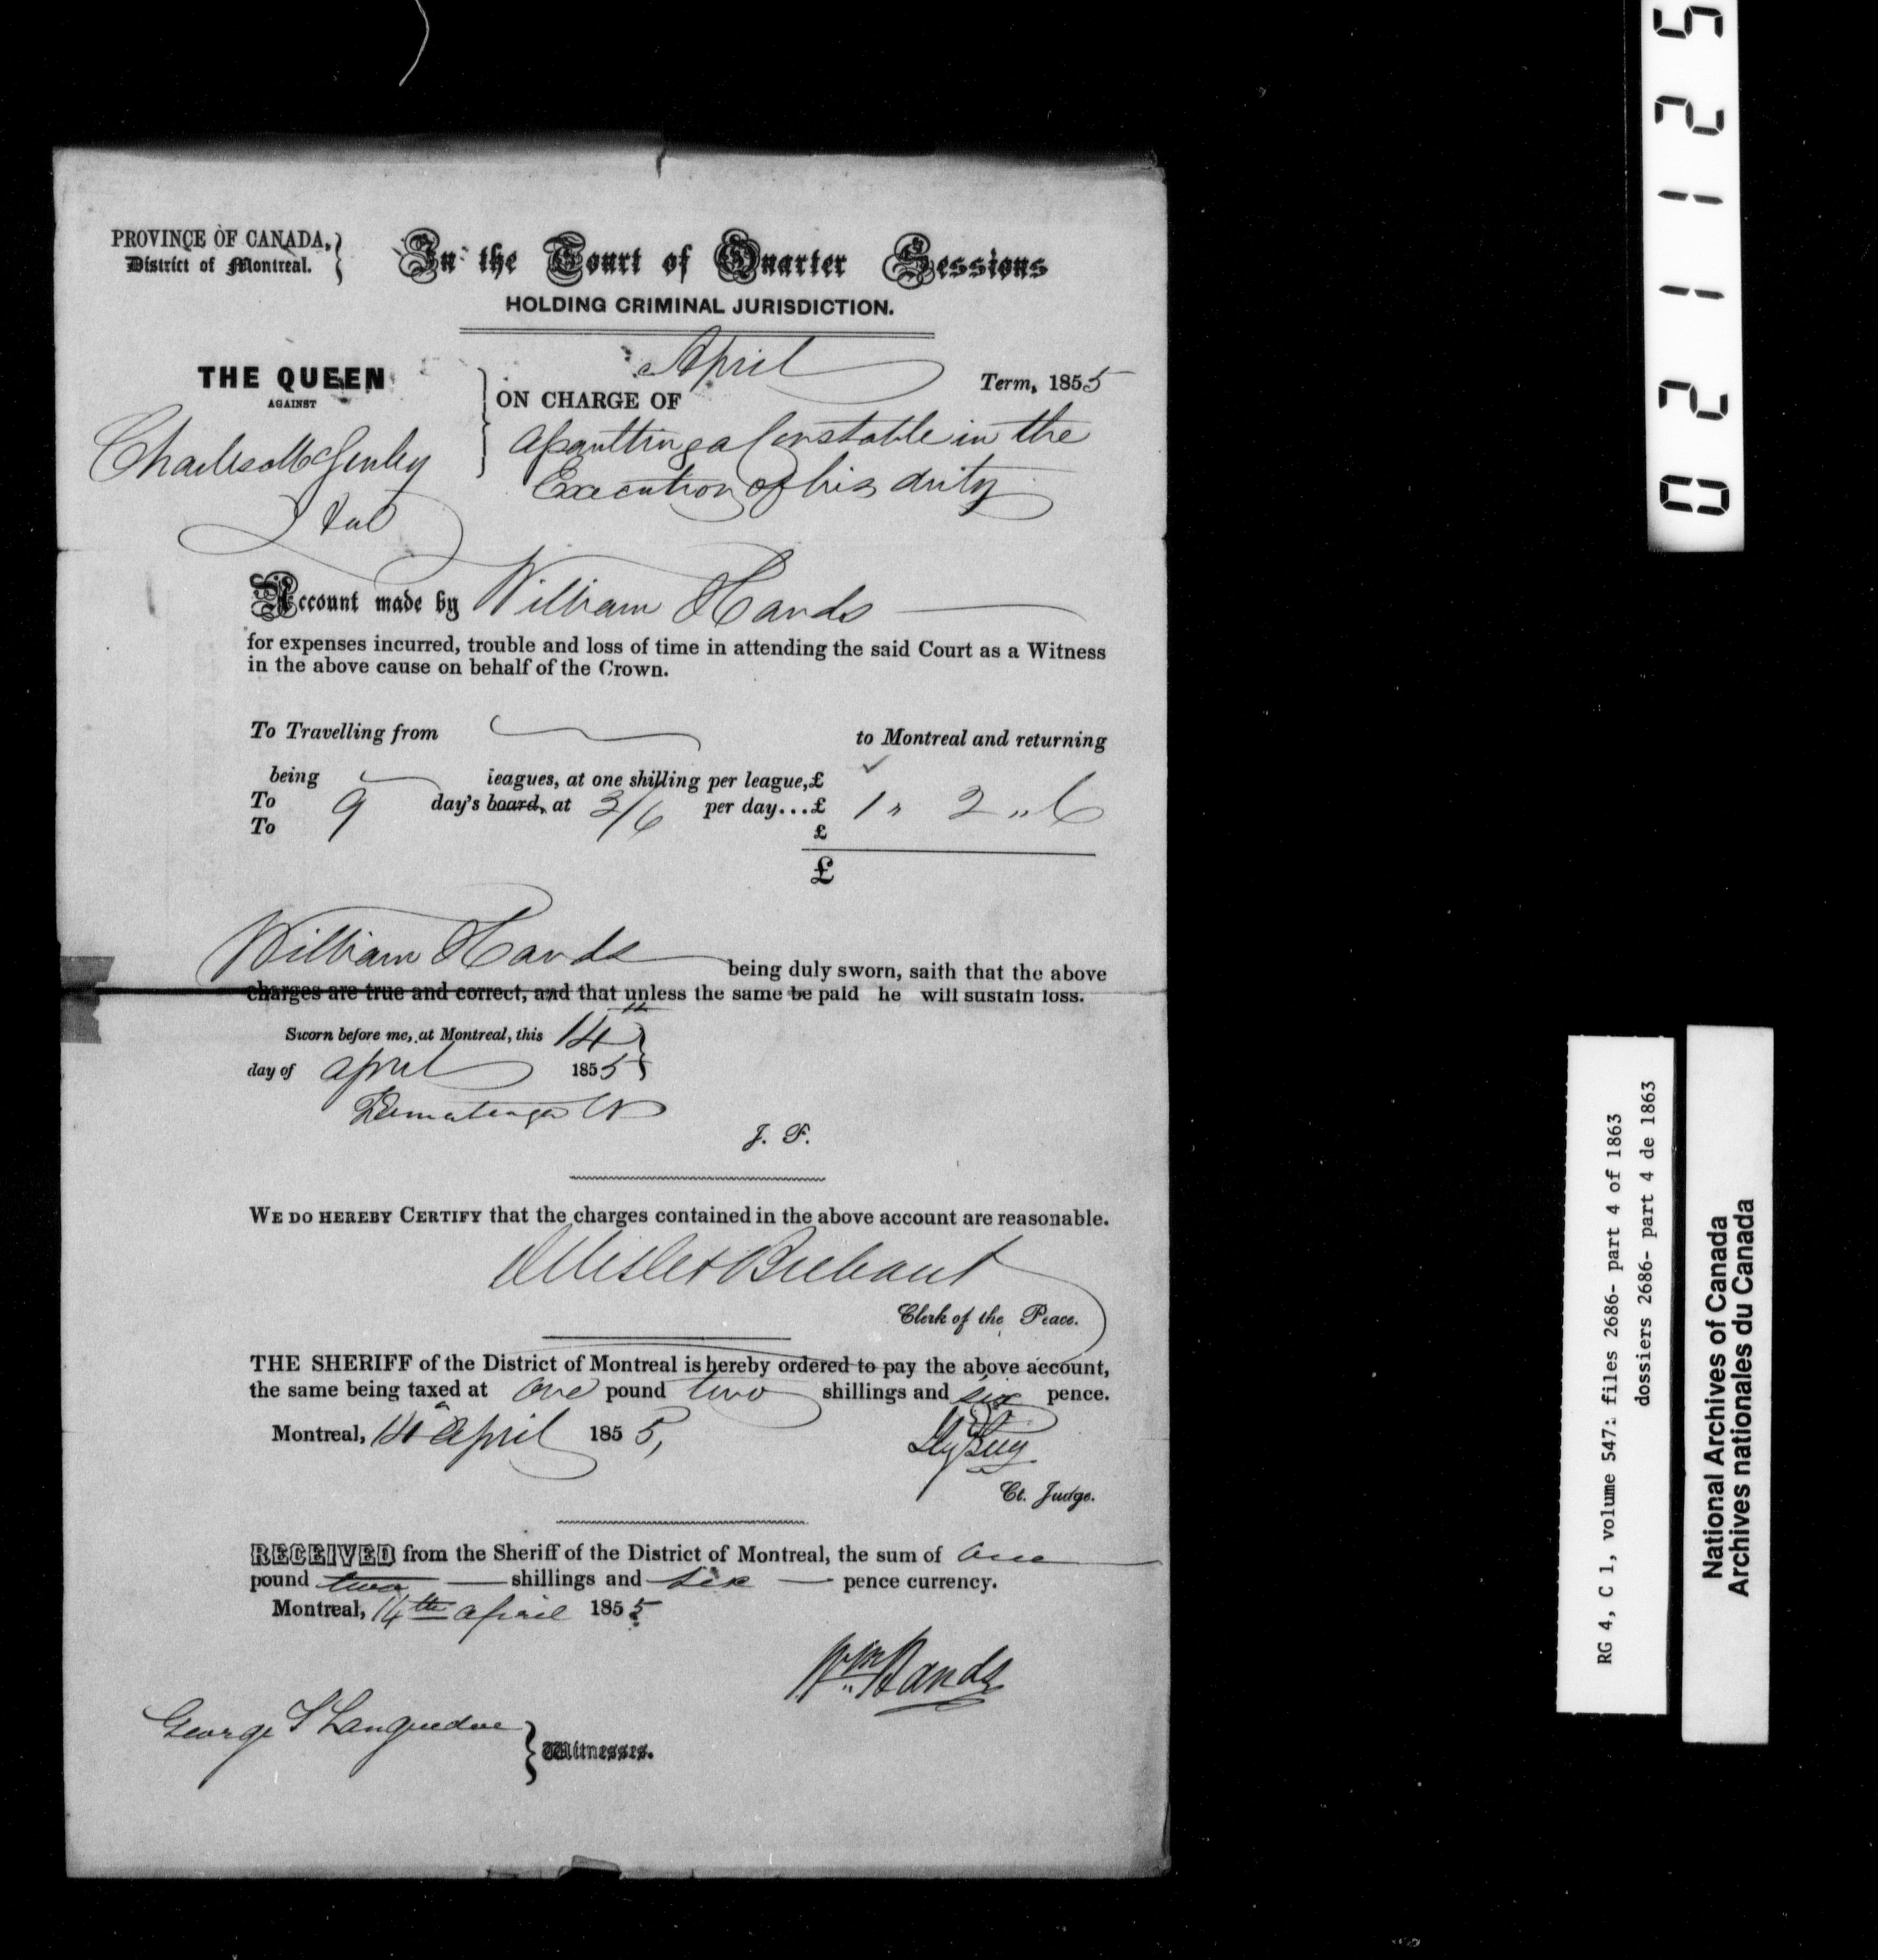 PROVINCE OF CANADA,
District of Montreal.
In the Court of Quarter Sessions
HOLDING CRIMINAL JURISDICTION.
April Term, 1855
THE QUEEN
AGAINST
Charles
& al
ON CHARGE OF
assaulting a Constable in the
Execution of his duty
Account made by William Hands
for expenses incurred, trouble and loss of time in attending the said Court as a Witness
in the above cause on behalf of the Crown.
To Travelling from to Montreal and returning
being leagues, at one shilling per league, £
To 9 day's board, at 2/6 per day...£ 1 " 2 " 6
To £
£
William Hands being duly sworn, saith that the above
charges are true and correct, and that unless the same be paid he will sustain loss.
Sworn before me, at Montreal, this 14th
day of april 1855
J. P.
WE DO HEREBY CERTIFY that the charges contained in the above account are reasonable.
Delisle & Brehaut
Clerk of the Peace.
THE SHERIFF of the District of Montreal is hereby ordered to pay the above account,
the same being taxed at one pound two shillings and six pence.
Montreal, 14 april 1855,
Ct. Judge.
RECEIVED from the Sheriff of the District of Montreal, the sum of one
pound two shillings and six pence currency.
Montreal, 14th april 1855
Wm Hands
George S Languedoc
Witnesses.
021125
RG 4, C 1, volume 547: files 2686- part 4 of 1863
dossiers 2686- part 4 de 1863
National Archives of Canada
Archives nationales du Canada